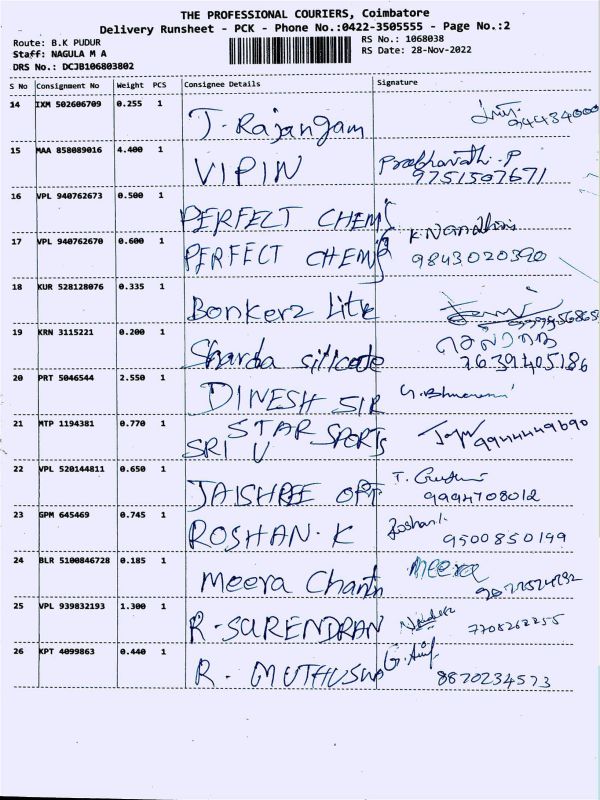 THE PROFESSIONAL COURIERS, Coimbatore
Delivery Runsheet - PCK - Phone No.:0422-3505555 - Page No.:2
Route: B.K PUDUR
RS No.: 1068038
Staff: NAGULA M A
RS Date: 28-Nov-2022
DRS No.: DCJB106803802
S No Consignment No Weight PCS Consignee Details Signature
14 IXM 502606709 0.255 1 J. Rajangam 94434000
15 MAA 858089016 4.400 1 VIPIN Prabhavathi.P 9751507671
16 VPL 940762673 0.500 1 PERFECT CHEM K.Nandhini
17 VPL 940762670 0.600 1 PERFECT CHEM 9843020390
18 KUR 528128076 0.335 1 Bonkerz Lite
19 KRN 3115221 0.200 1 Sharda silicate 7639405186
20 PRT 5046544 2.550 1 DINESH SIR
21 MTP 1194381 0.770 1 SRI U STAR SPORTS 9944449690
22 VPL 520144811 0.650 1 JAISHREE OPT 9994708012
23 GPM 645469 0.745 1 ROSHAN. K Roshan.k 9500850149
24 BLR 5100846728 0.185 1 Meera Chanth Meera
25 VPL 939832193 1.300 1 R. SURENDRAN 7708262255
26 KPT 4099863 0.440 1 R. MUTHUSWA 8870234573